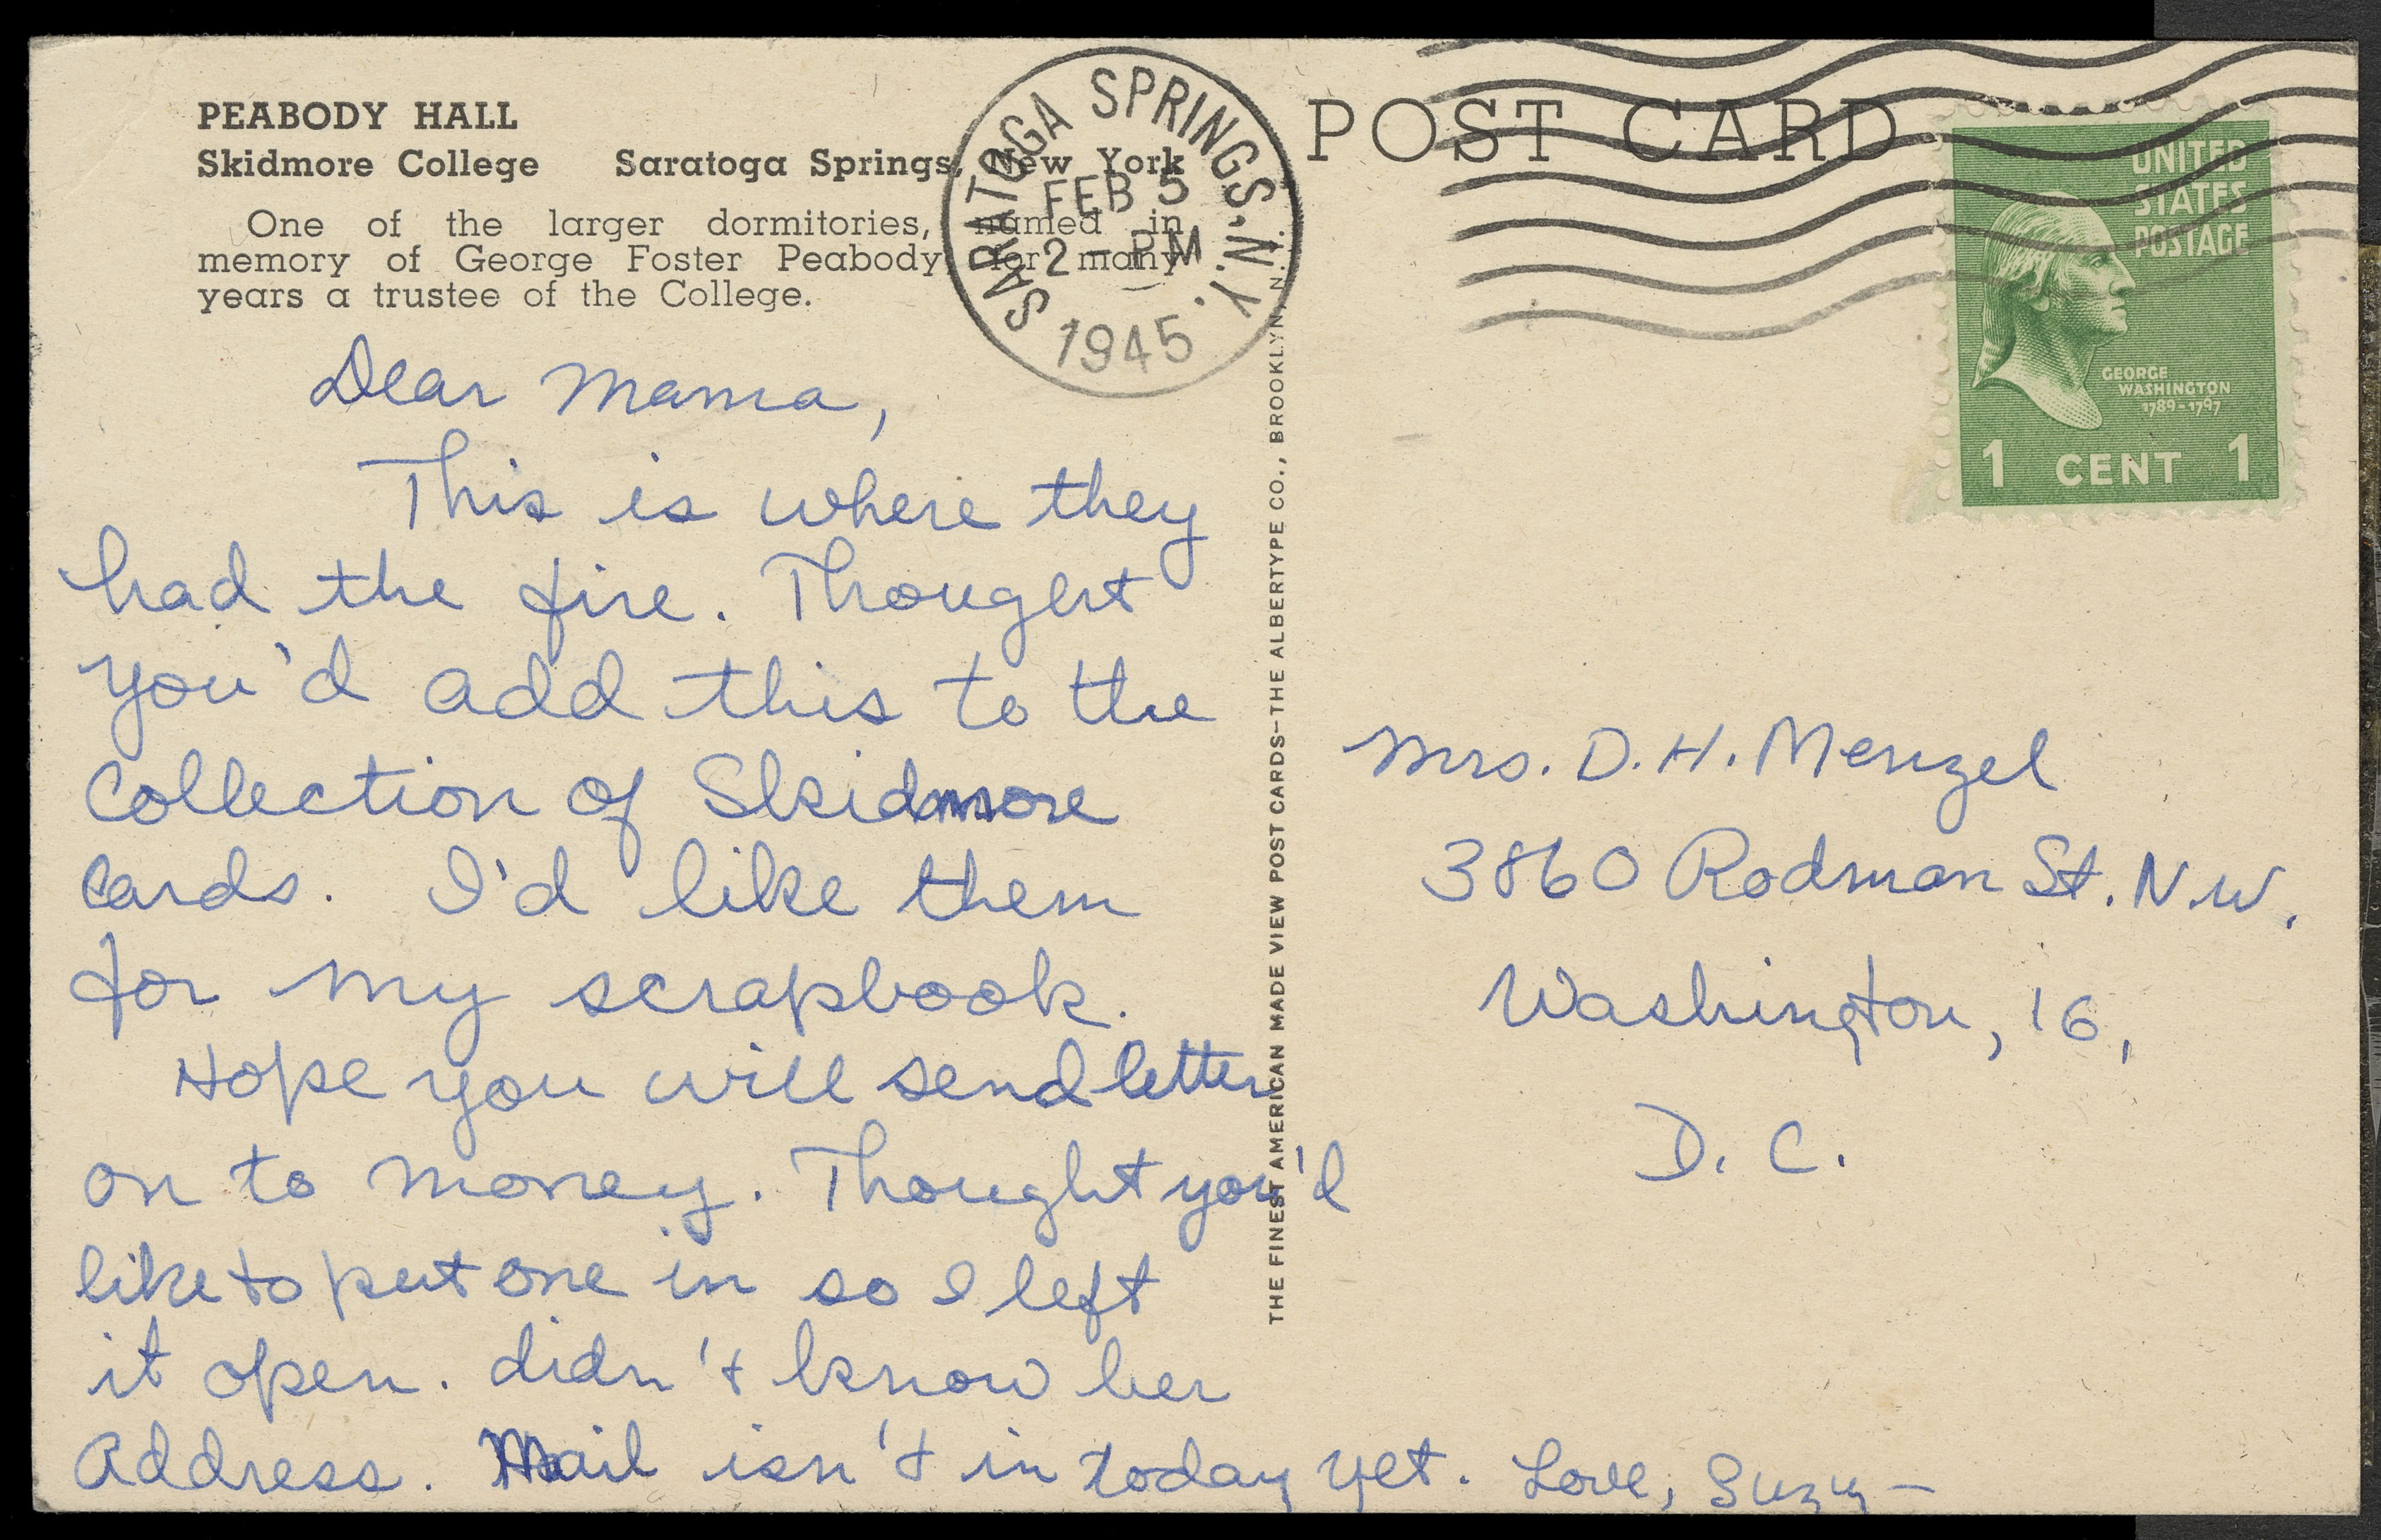 PEABODY HALL
Skidmore College Saratoga Springs, New York
One of the larger dormitories, named in
memory of George Foster Peabody, for many
years a trustee of the College.
SARATOGA SPRINGS, N.Y.
FEB 5
2 - PM
1945
POST CARD
UNITED
STATES
POSTAGE
GEORGE
WASHINGTON
1789-1797
1 CENT 1
Dear Mama,
This is where they
had the fire. Thought
you'd add this to the
collection of Skidmore
cards. I'd like them
for my scrapbook.
Hope you will send letter
on to money. Thought you'd
like to put one in so I left
it open. didn't know her
Address. Mail isn't in today yet. Love, Suzy-
THE FINEST AMERICAN MADE VIEW POST CARDS-THE ALBERTYPE CO., BROOKLYN, N.Y.
Mrs. D. H. Menzel
3860 Rodman St. N.W.
Washington, 16,
D. C.